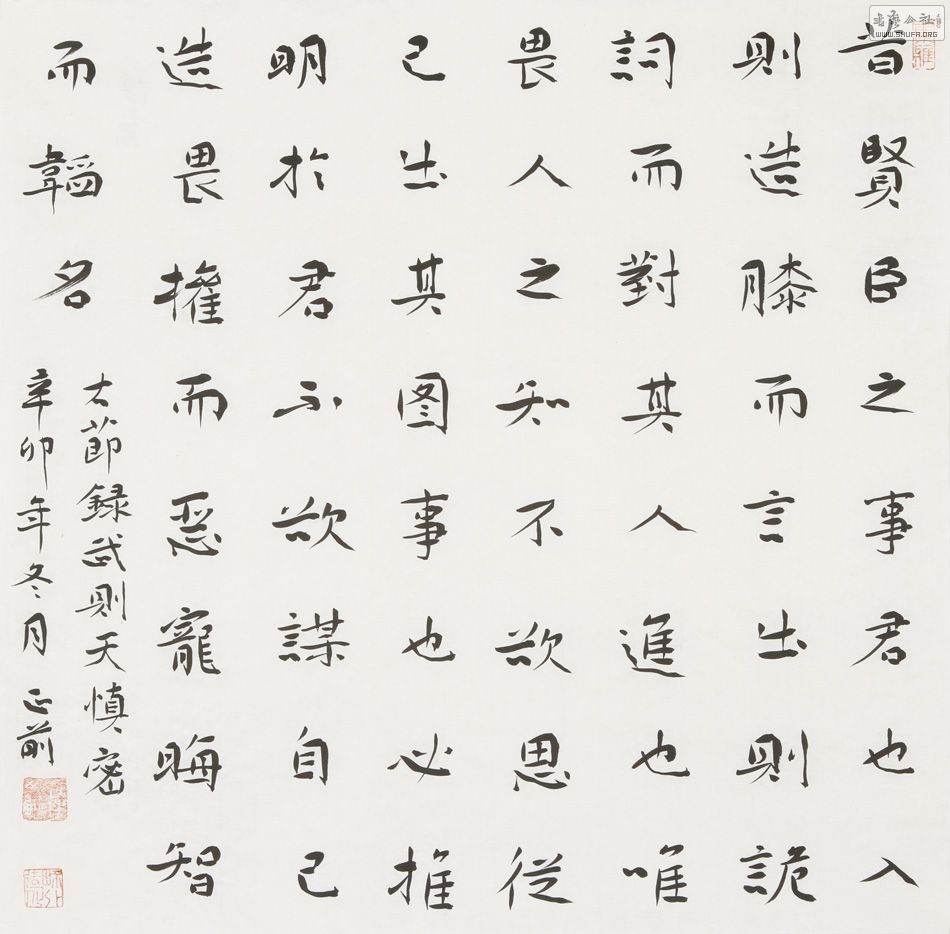 昔賢臣之事君也入
則造膝而言出則詭
詞而對其人進也唯
畏人之知不欲恩從
己出其图事也必推
明於君不欲謀自己
造畏權而惡寵晦智
而韜名
大節録武則天慎密
辛卯年冬月正前
书艺公社
WWW.SHUFA.ORG